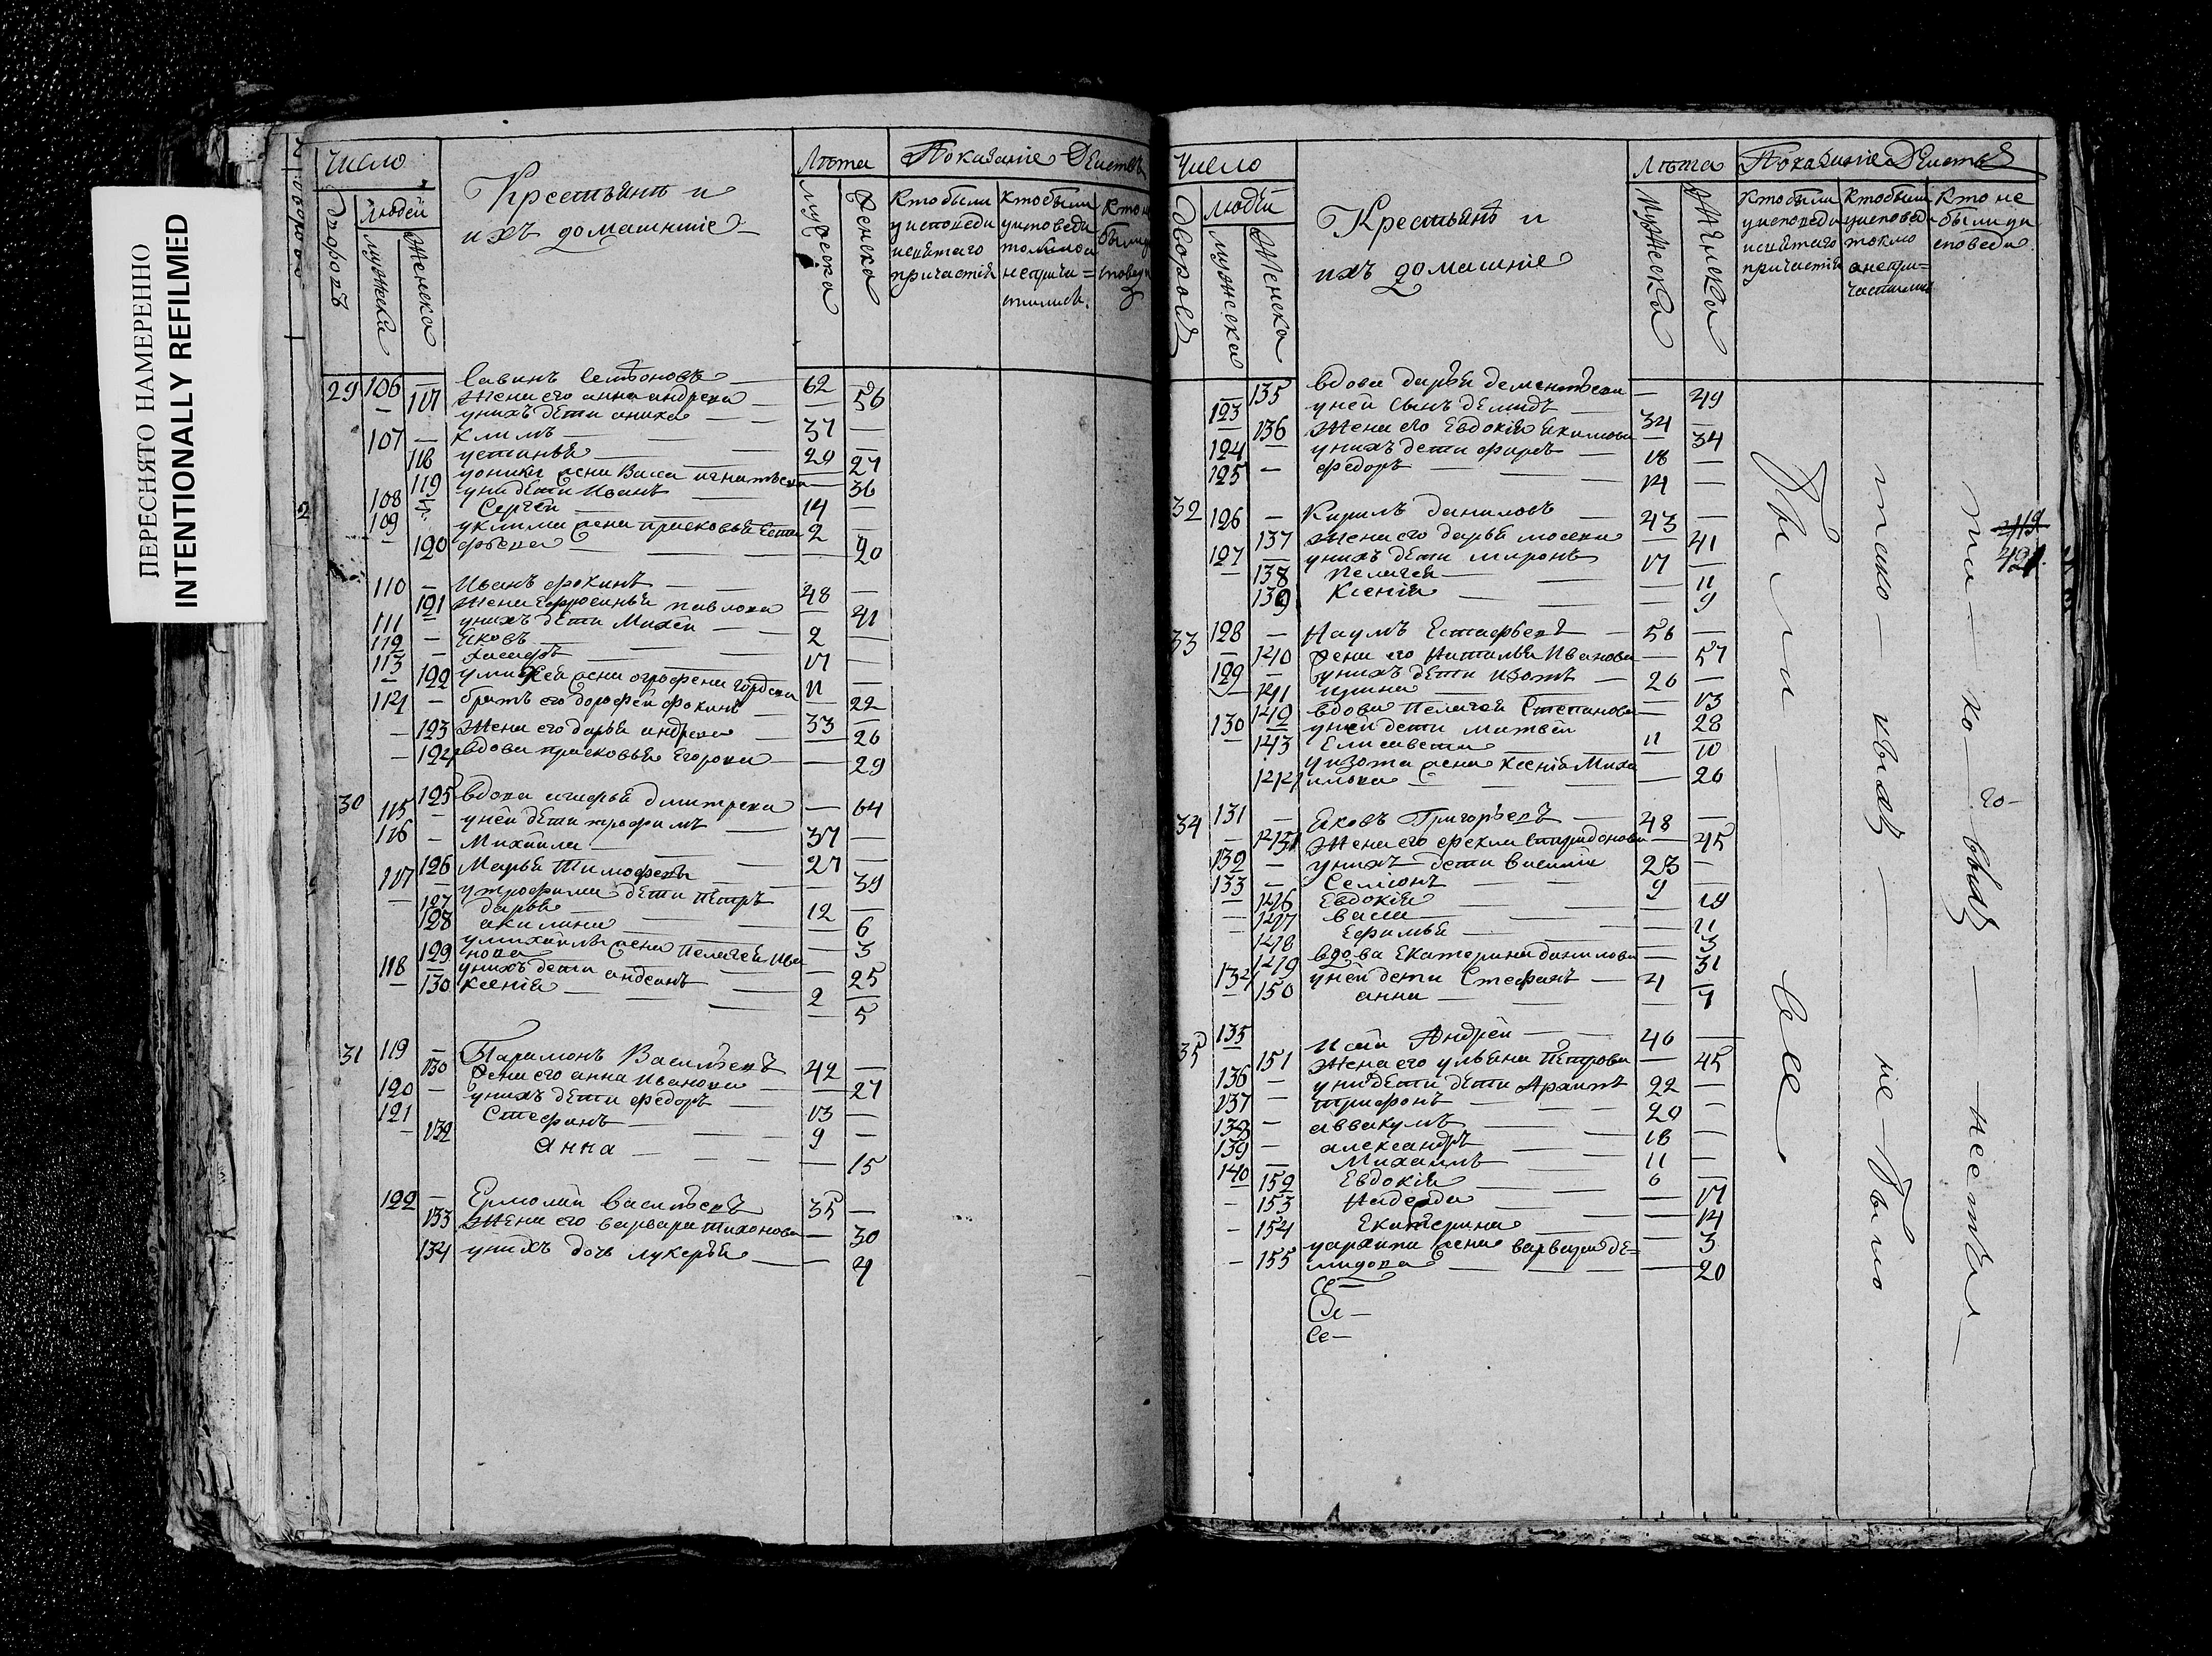 ПЕРЕСНЯТО НАМЕРЕННО
INTENTIONALLY REFILMED
Число
Лѣта
Показание Действъ
дворовъ
людей
мужеска
женска
Крестьянъ и
ихъ домашние
мужеска
женска
Кто были
у исповеди
и святаго
причастия
Кто были
у исповеди
токмо а
не прича=
стились.
29 106 — Савинъ Семеоновъ — 62
— 117 жена его анна андреева — 56
у нихъ дети аника — 37 —
107 — климъ — 20 —
118 устинья — 27
119 у аники жена Васа игнатьева — 36
108 у ни дети Иванъ — 14 —
109 Сергей — 2 —
у клима жена прасковья Еста
120 фьева — 20
110 — Иванъ фокинъ — 48 —
121 жена Ефросинья павлова — 41
111 у нихъ дети Михей — 2 —
112 — Яковъ — 17 —
113 — — 11 —
122 у михея жена огрофена гордеева — 22
114 — братъ его дорофей фокинъ — 33 —
— 123 жена его дарья андреева — 26
— 124 вдова прасковья Егорова — 29
30 125 вдова агафья дмитреева — 64
115 — у ней дети трофимъ — 37 —
116 — Михайла — 27 —
126 Марья Тимофеева — 39
117 — у трофима дети Петръ — 12 —
127 дарья — 6
128 акилина — 3
у михайлы жена Пелагея Ива
129 нова — 25
118 — у нихъ дети андеянъ — 2 —
— 130 ксения — 5
31 119 — Парамонъ Васильевъ — 42 —
130 жена его анна Иванова — 27
120 — у нихъ дети федоръ — 13 —
121 Стефанъ — 9 —
— 132 Анна — 15
122 — Ермолай Васильевъ — 35 —
133 жена его варвара тихонова — 30
134 у нихъ дочь лукерья — 4
Число
Лѣта
Показание Действъ
дворовъ
людей
мужеска
женска
Крестьянъ и
ихъ домашние
мужеска
женска
Кто были
у исповеди
и святаго
причастия
Кто были
у исповеди
токмо
а не при=
частились
Кто не
были у и
споведи.
135 вдова дарья дементьева — 49
123 — у ней сынъ демидъ — 34 —
— 136 жена его Евдокия Якимова — 34
124 — у нихъ дети фирсъ — 18 —
125 — федоръ — 14 —
32 126 — Кирилъ даниловъ — 43 —
137 жена его дарья мосеева — 41
127 — у нихъ дети миронъ — 17 —
— 138 пелагея — 11
139 Ксения — 9
33 128 — Наумъ Естафьевъ — 56 —
— 140 жена его Наталья Иванова — 57
129 — у нихъ дети изотъ — 20 —
— 141 ирина — 13
142 вдова Пелагея Степанова — 28
130 — у ней дети матвей 11 —
— 143 Елисавета — 10
у изота жена Ксения Миха
144 илова — 20
34 131 — Яковъ Григорьевъ — 48 —
— 145 жена его фекла спиридонова — 45
132 — у нихъ дети василий 23 —
133 — Семионъ — 9 —
— 146 Евдокия — 19
— 147 васса — 11
148 Ефимья — 3
149 вдова Екатерина данилова — 31
134 — у ней дети Стефанъ — 4 —
— 150 анна — 7
35 135 Андрей — 46 —
— 151 жена его ульяна Петрова — 45
136 — у ни дети дети Архипъ 22 —
137 — трифонъ — 20 —
138 — аввакумъ — 18 —
139 — александръ — 11 —
140 — Михаилъ — 6 —
— 152 Евдокия — 17
— 153 Надежда — 14
— 154 Екатерина — 3
у архипа жена варвара де=
— 155 мидова — 20
Се —
Се —
Се —
Были — все
тако — выхъ — не было
та — ко — выхъ — несть
421